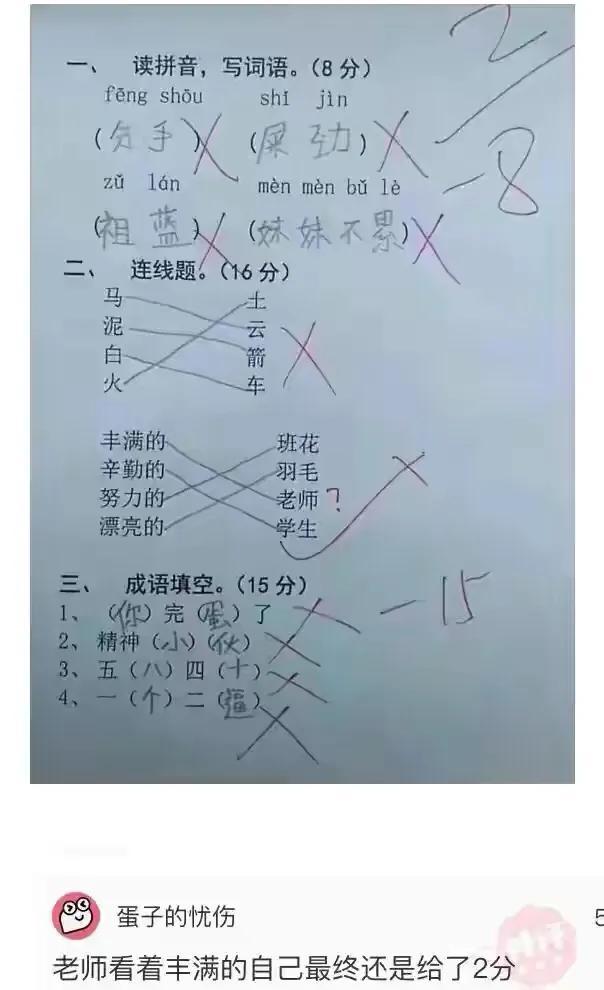 2
一、 读拼音，写词语。（8分）
fēng shōu shī jìn
（分手） （屎劲）
-8
zǔ lán mèn mèn bǔ lè
（祖蓝） （妹妹不累）
二、 连线题。（16分）
马 土
泥 云
白 箭
火 车
丰满的 班花
辛勤的 羽毛
努力的 老师？
漂亮的 学生
三、 成语填空。（15分）
-15
1、（你）完（蛋）了
2、精神（小）（伙）
3、五（八）四（十）
4、一（个）二（逼）
蛋子的忧伤
5
老师看着丰满的自己最终还是给了2分